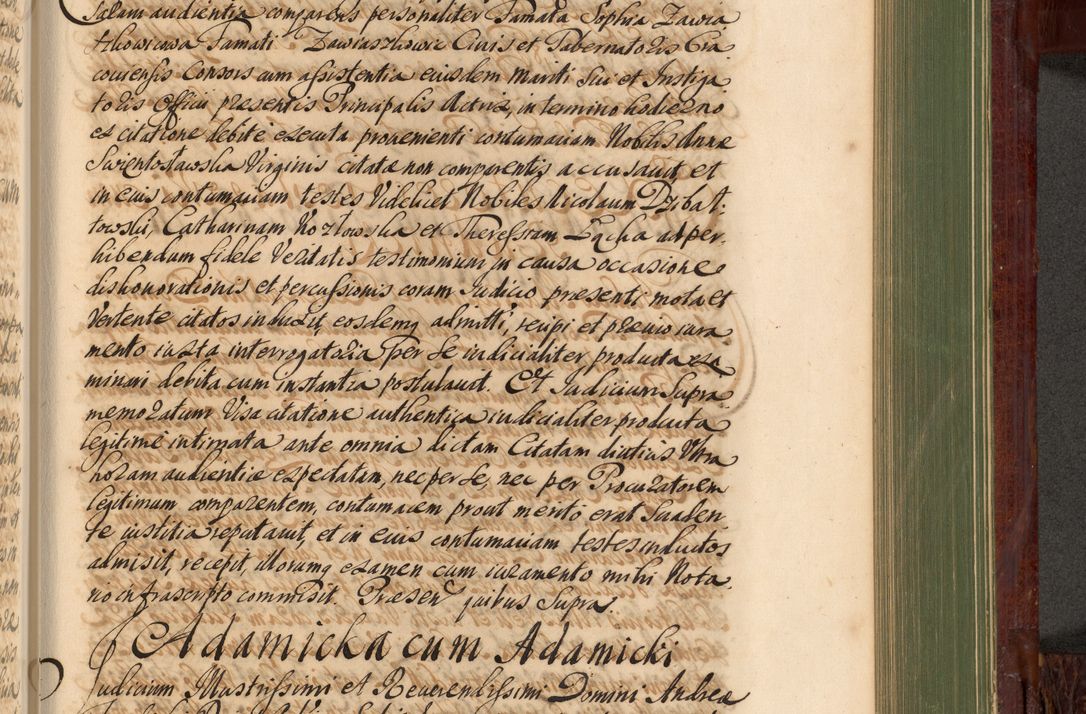 suam audientia comparens personaliter Famata Sophia Zawia
szkowicowa Famati Zawiaszkowic Civis et Tabernatoris Cra
couiensis Consors cum assistentia eiusdem Mariti Sui et Instiga
toris Officii præsentis Principalis Actrix, in termino hodierno
ex citatione debite executa prouenienti contumaciam Nobilis Annæ
Swientosławska Virginis citatæ non comparentis accusauit et
in eius contumaciam testes Videlicet Nobiles Nicolaum Dzibałt:
towski, Catharinam Kozłowska et Theressiam Łącka ad per-
hibendum fidele Veritatis testimonium in causa occasione
dishonorationis et percussionis coram Iudicio præsenti mota et
Vertente citatos induxit, eosdemq admitti, recipi et præuio iura
mento iuxta interrogatoria per se iudicialiter producta exa
minari debita cum instantia postulauit. Et Iudicium Supra
memoratum Visa citatione authentica iudicialiter producta
legitime intimata ante omnia dictam Citatam diutius Vltra
horam audientiæ expectatam, nec per se, nec per Procuratorem
legitimum comparentem, contumacem prout merito erat Suaden
te iustitia reputauit, et in eius contumaciam testes inductos
admisit, recepit, illorumq examen cum iuramento mihi Nota
rio infrascripto commisit. Præsen quibus Supra.
Adamicka cum Adamicki
Iudicium Illustrissimi et Reuerendissimi Domini Andreæ